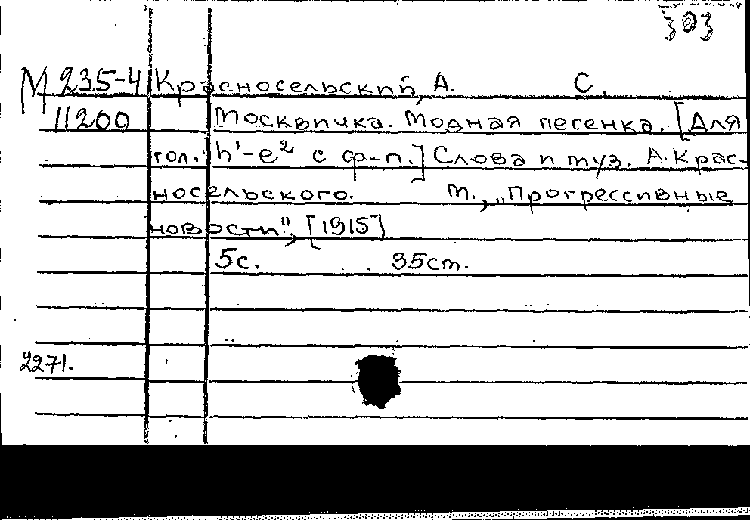 303
М 235-4 Красносельский, А. С.
11200 Москвичка. Модная песенка. [Для
гол. h¹-e² с ф-п.] Слова и муз. А. Крас-
носельского. М., „Прогрессивные
новости", [1915]
5с. 35ст.
2271.